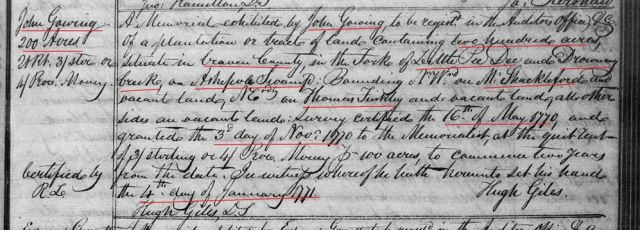 John Gowing
200 Acres
2 Rt. 3/ ster. or
4/ Proc. Money
Certified by
A Memorial exhibited by John Gowing to be registd. in the Auditors Office &c
Of a plantation or tract of land containing two hundred acres
Situate in Craven County, in the Forke of Little Pee Dee and Drowning
Creek, on Ashpole Swamp: Bounding NWd. on Mr. Shackleford and
vacant land, NEdly. on Thomas Tinkley and vacant land, all other
sides on vacant land: Survey certified the 16th. of May 1770, and
granted the 3d. day of Novr. 1770 to the Memorialist, at the quit rent
of 3/ sterling or 4/ Proc. Money P 100 acres, to commence two Years
from the date. In witness whereof he hath hereunto set his hand
the 4th. day of January 1771
Hugh Giles
Hugh Giles D.S